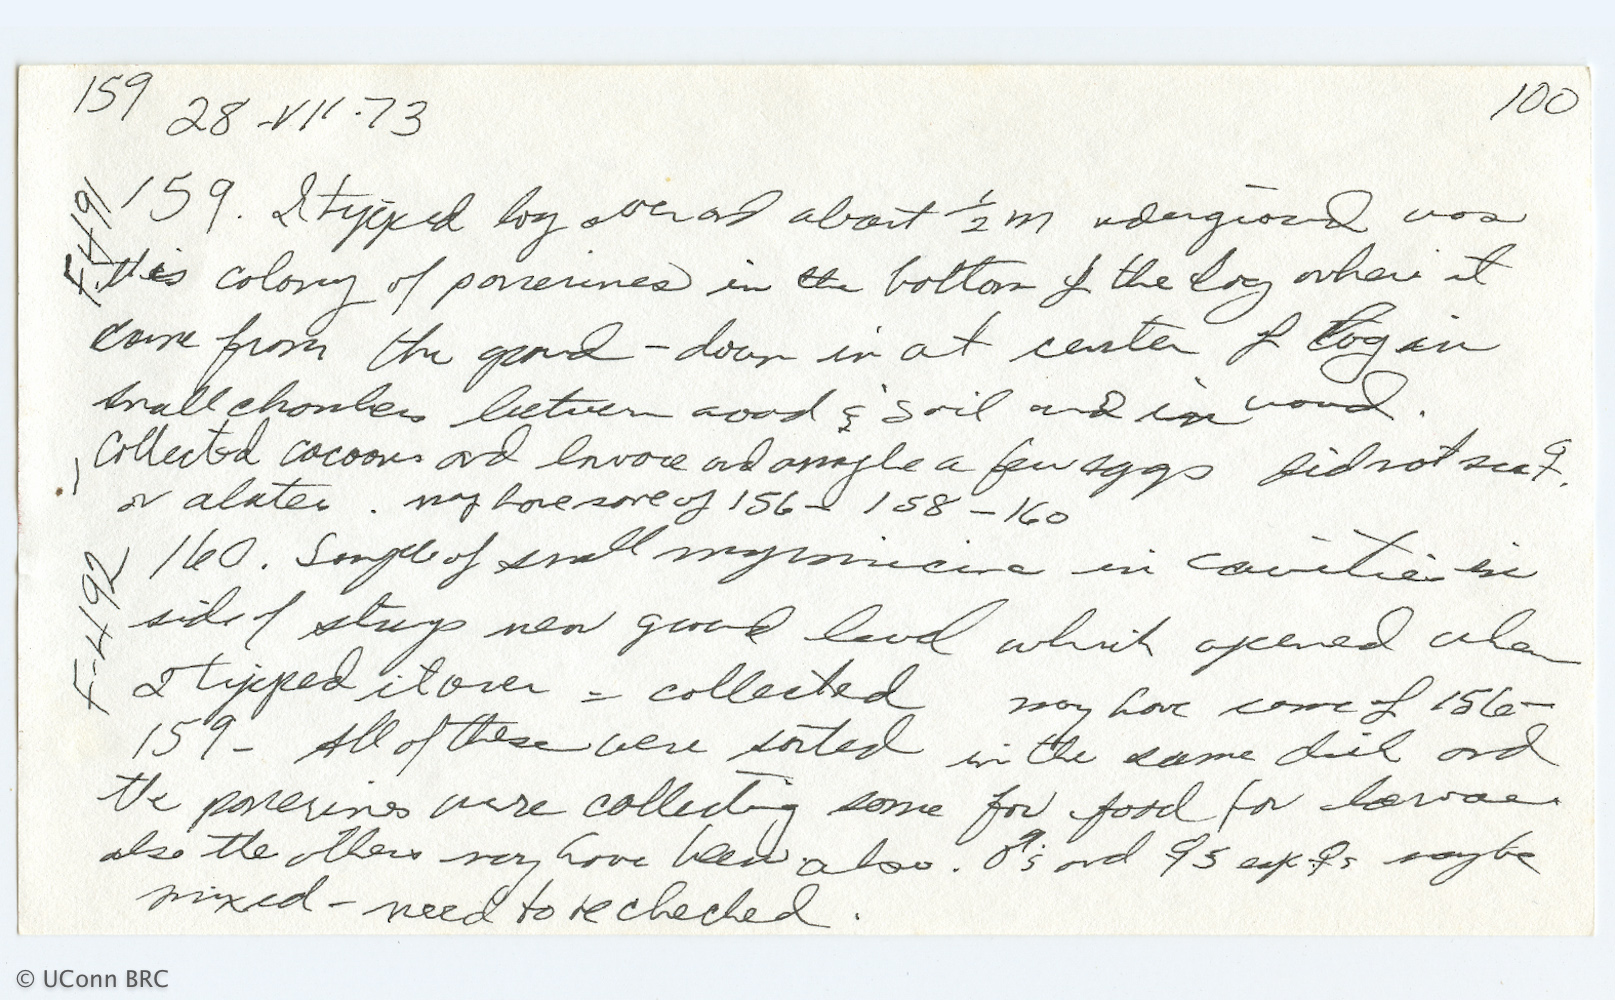 159 28-VII-73 100
F-491
159. I tipped log over and about ½ m underground was
this colony of ponerines in the bottom of the log where it
came from the ground - down in at center of log in
small chambers between wood & soil and in wood.
Collected cocoons and larvae and maybe a few eggs did not see ♀
or alates. may have some of 156 - 158 - 160
F-492
160. Sample of small myrmicine in cavities in
side of stump near ground level which opened when
I tipped it over = collected may have some of 156-
159 - All of these were sorted in the same dish and
the ponerines were collecting some for food for larvae
also the others may have been also. ♂'s and ♀'s esp. ♀s maybe
mixed - need to be checked.
© UConn BRC